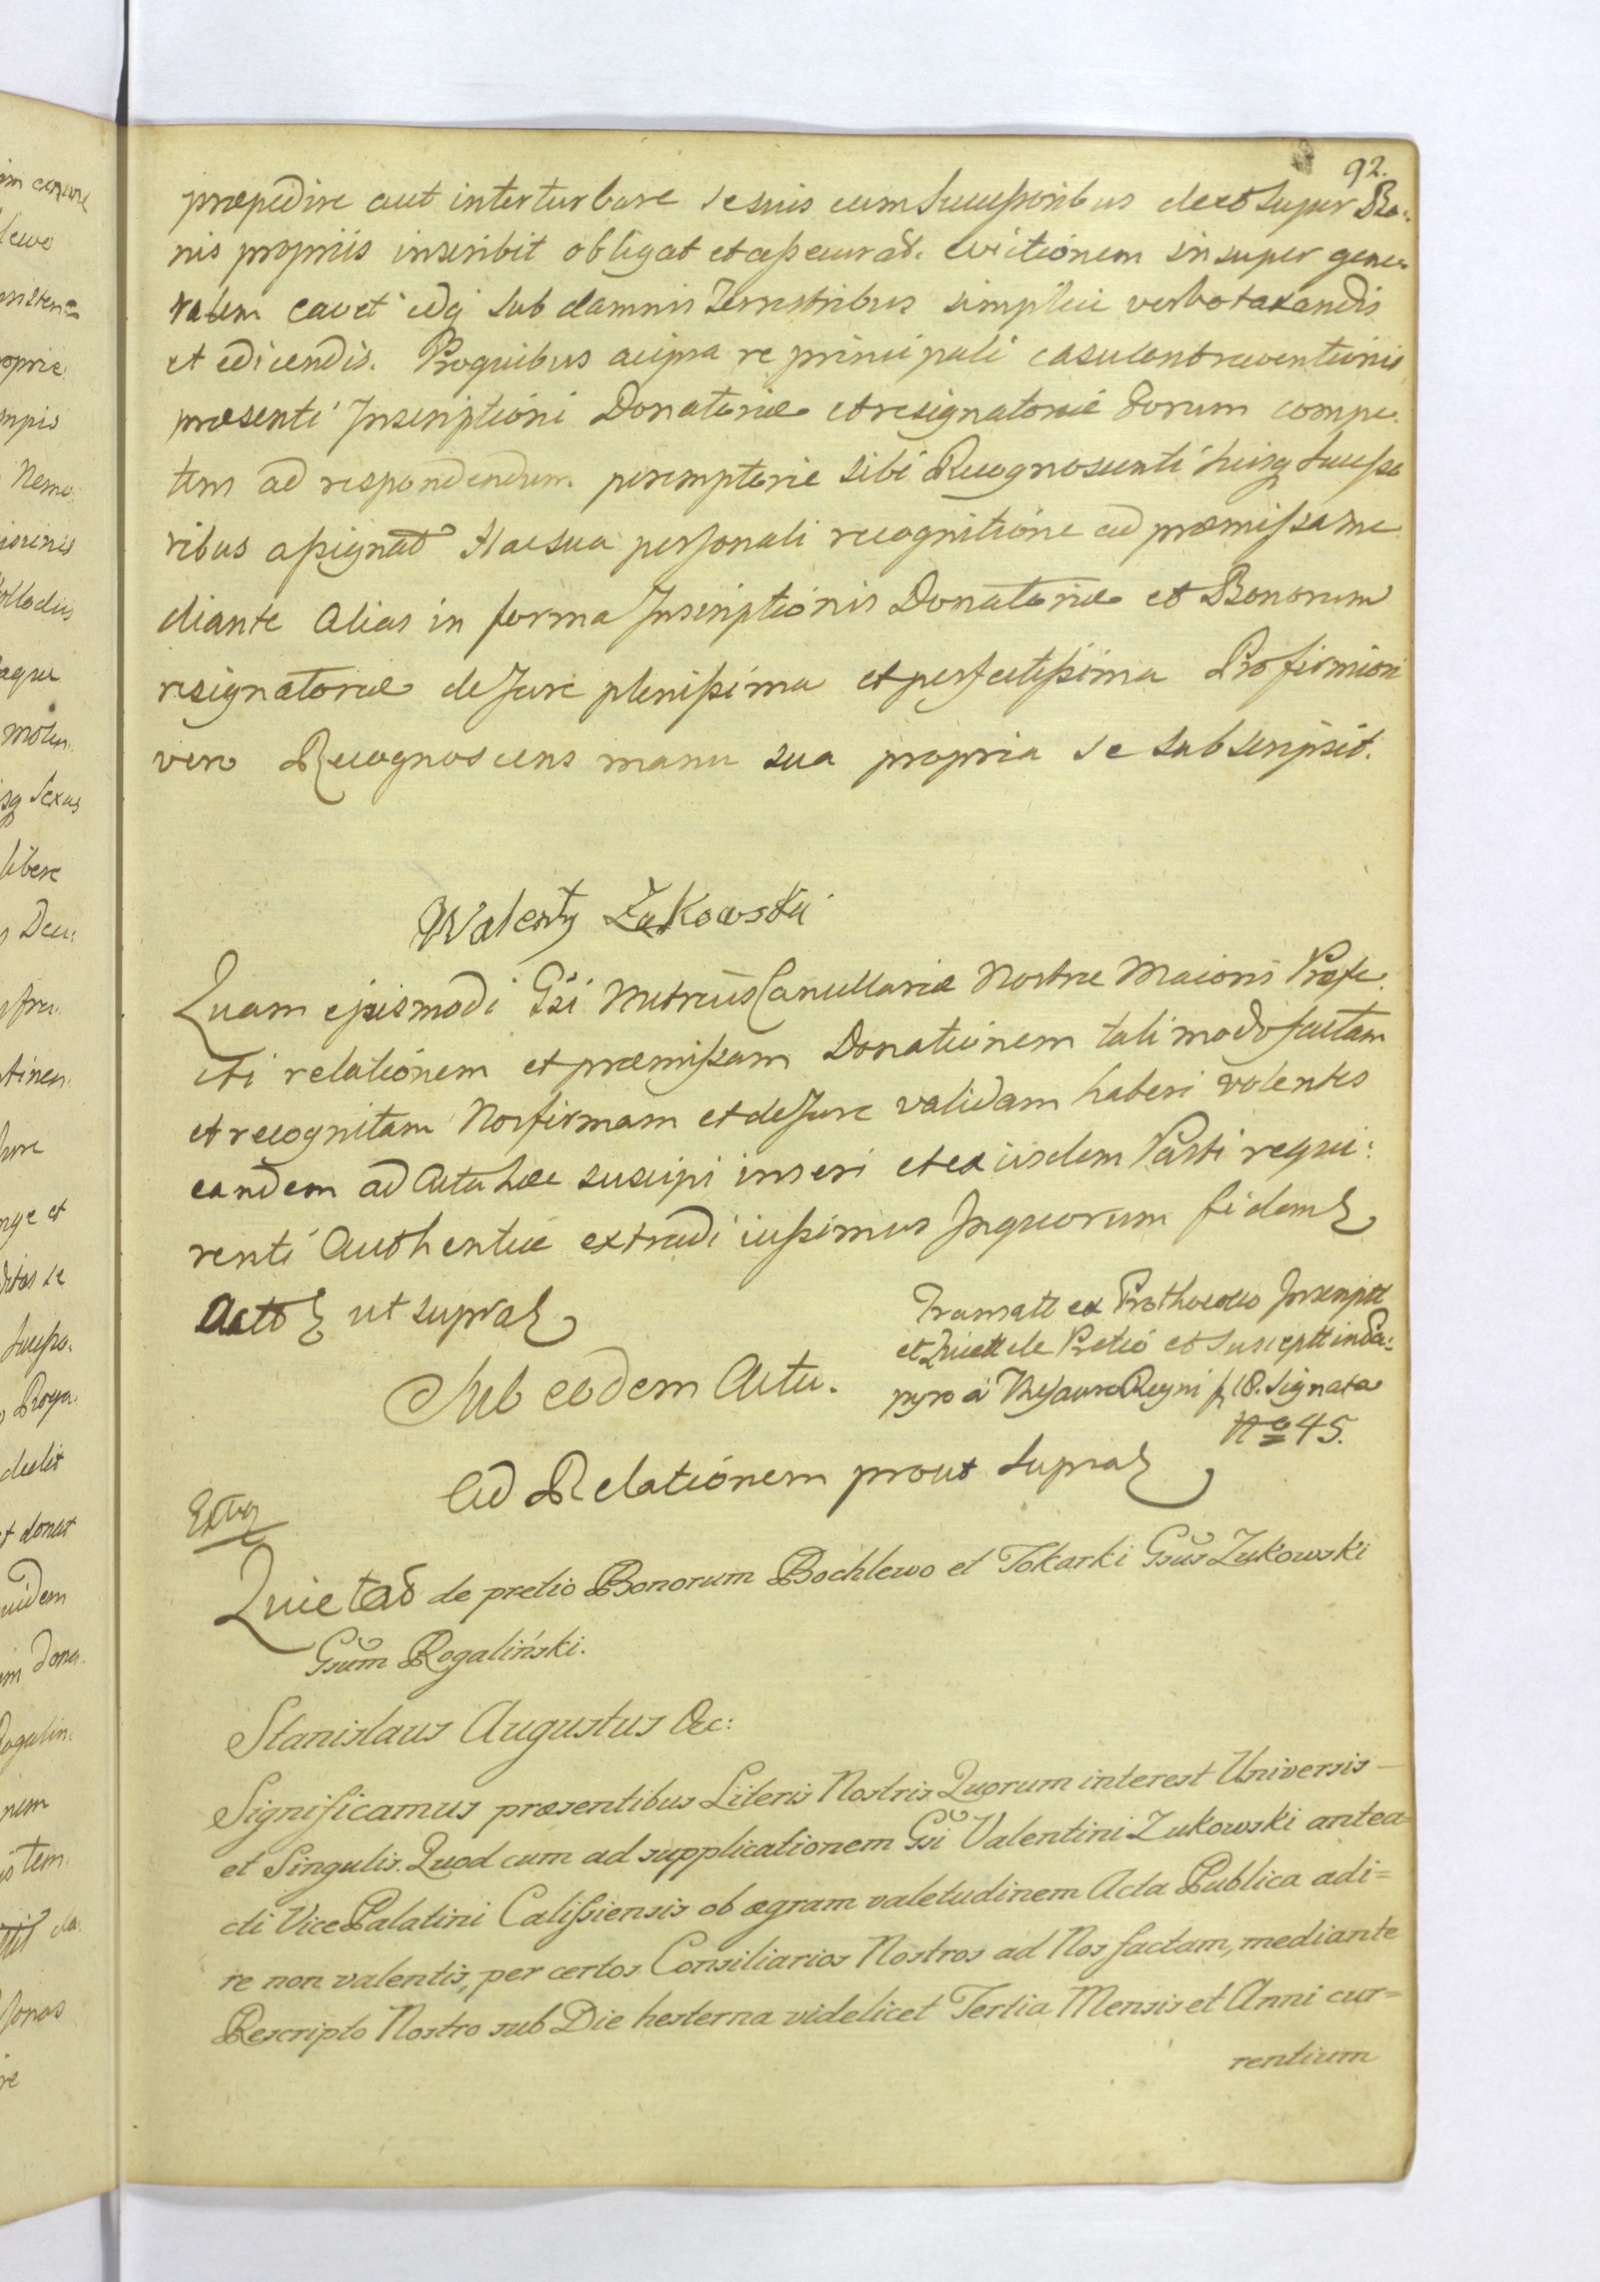 92.
præpedire aut interturbare se suis cum Successoribus de et super Bo:
nis propriis inscribit obligat et assecurat. Evictionem insuper gene
ralem cavet idq sub damnis Terrestribus simplici verbo taxandis
et edicendis. Pro quibus ac ipsa re principali casu contraventionis
præsenti Inscriptioni Donatoriæ et resignatoriæ Forum compe.
tens ad respondendum peremptorie sibi Recognoscenti suisq Successo
ribus assignat Hac sua personali recognitione ad præmissa me
diante alias in forma Inscriptionis Donatoriæ et Bonorum
resignatoriæ de Jure plenissima et perfectissima Pro firmiori
vero Recognoscens manu sua propria se subscripsit.
Walenty Zukowski
Quam ejusmodi Gsi Metrices Cancellariæ Nostræ Maioris Præfe.
cti relationem et præmissam Donationem tali modo factam
et recognitam Nos firmam et de Jure validam haberi volentes
eandem ad Acta hæc suscipi inseri et ex iisdem Parti requi:
renti Authentice extradi iussimus In quorum fidem
Actt ut supra
Transatt ex Prothocollo Inscriptt
et Quiett de Pretio et Susceptt in Pa:
pyro á Thesauro Regni f 18. signata
No 45.
Sub eodem Actu.
Ad Relationem prout supra
Quietat de pretio Bonorum Bochlewo et Tokarki Gsus Zukowski
Gsum Rogaliński.
Stanislaus Augustus &c:
Significamus præsentibus Literis Nostris Quorum interest Universis
et Singulis. Quod cum ad supplicationem Gsi Valentini Zukowski antea
cti Vice Palatini Calissiensis ob ægram valetudinem Acta Publica adi=
re non valentis, per certos Consiliarios Nostros ad Nos factam, mediante
Rescripto Nostro sub Die hesterna videlicet Tertia Mensis et Anni cur=
rentium